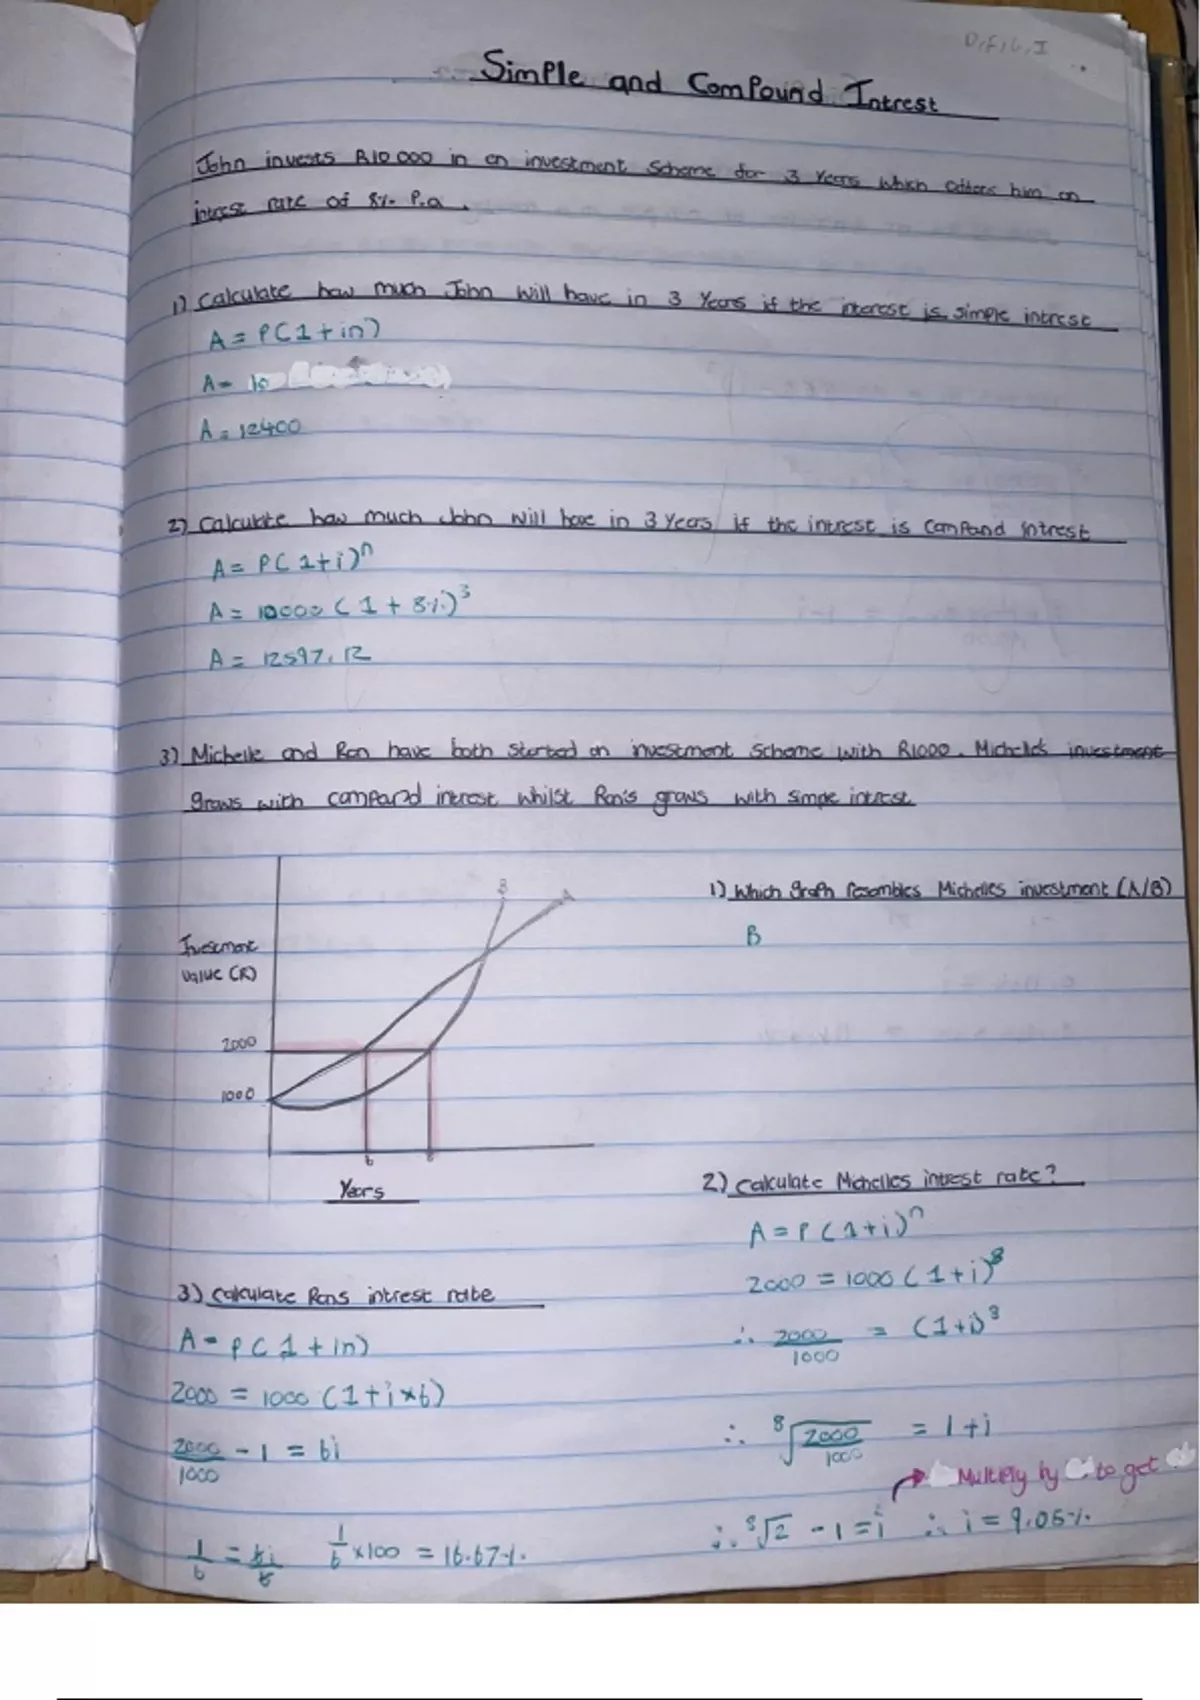 Simple and Compound Intrest
John invests R10 000 in an investment scheme for 3 Years which offers him an
intrest rate of 8% P.a.
1) Calculate how much John will have in 3 Years if the interest is simple intrest
A = P(1+in)
A = 10
A = 12400
2) Calculate how much John will have in 3 Years if the intrest is compound intrest
A = P(1+i)ⁿ
A = 10000(1+8%)³
A = 12597,12
3) Michelle and Ron have both started an investment scheme with R1000. Michelle's investment
grows with compound interest whilst Ron's grows with simple intrest
B
A
Investment
value (R)
2000
1000
6
8
Years
1) Which graph resembles Michelles investment (A/B)
B
2) Calculate Michelles intrest rate?
A = P(1+i)ⁿ
2000 = 1000(1+i)⁸
∴ 2000/1000 = (1+i)⁸
∴ ⁸√2000/1000 = 1+i
Multiply by to get
∴ ⁸√2 - 1 = i ∴ i = 9.05%
3) Calculate Rons intrest rate
A = P(1+in)
2000 = 1000(1+i×6)
2000/1000 - 1 = 6i
1/6 = 6i/6 1/6 ×100 = 16.67%.